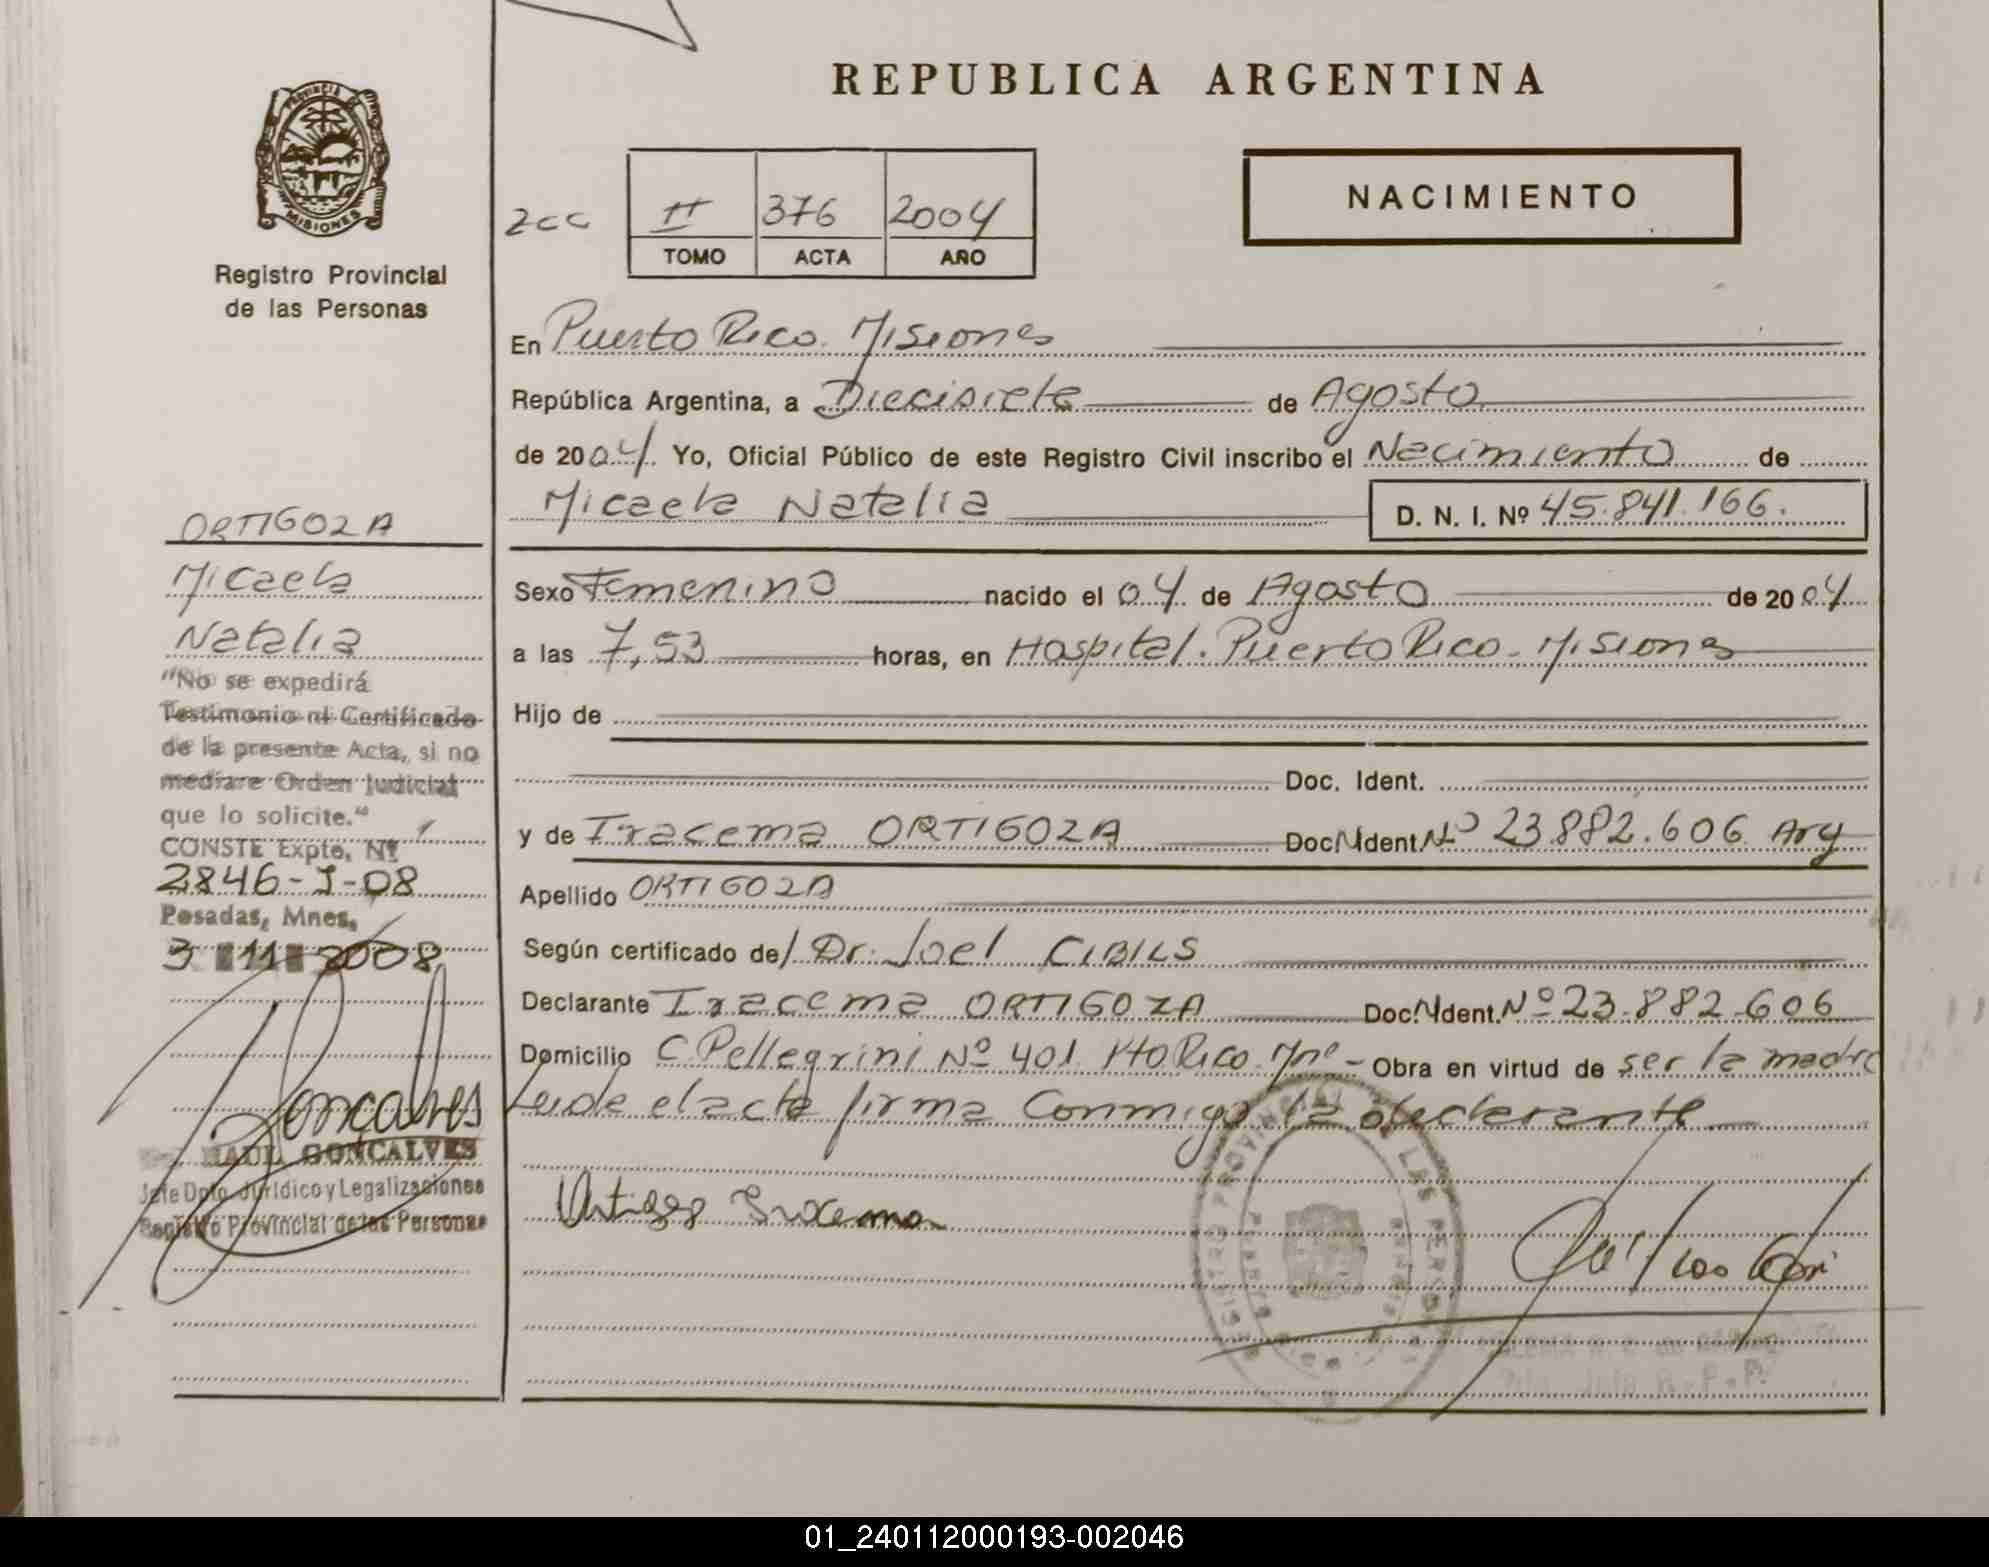 REPUBLICA ARGENTINA
PROVINCIA DE
MISIONES
Registro Provincial
de las Personas
NACIMIENTO
2cc
II 376 2004
TOMO ACTA AÑO
En Puerto Rico. Misiones
República Argentina, a Diecisiete de Agosto
de 2004 Yo, Oficial Público de este Registro Civil inscribo el Nacimiento de
Micaela Natalia D. N. I. Nº 45.841.166.
Sexo Femenino nacido el 04 de Agosto de 2004
a las 7,53 horas, en Hospital. Puerto Rico. Misiones
Hijo de
Doc. Ident.
y de Iracema ORTIGOZA Doc. Ident. Nº 23.882.606 Arg
Apellido ORTIGOZA
Según certificado de Dr. Joel CIBILS
Declarante Iracema ORTIGOZA Doc. Ident. Nº 23.882.606
Domicilio C. Pellegrini Nº 401. Pto Rico. Mnes - Obra en virtud de ser la madre
Leída el acta firma Conmigo la declarante
Ortigoz Iracema
REGISTRO PROVINCIAL DE LAS PERSONAS
ORTIGOZA
Micaela
Natalia
"No se expedirá
Testimonio ni Certificado
de la presente Acta, si no
mediare Orden Judicial
que lo solicite."
CONSTE Expte. Nº
2846-J-08
Posadas, Mnes,
3 11 2008
Goncalves
RAUL GONCALVES
Jefe Dpto. Jurídico y Legalizaciones
Registro Provincial de las Personas
01_240112000193-002046